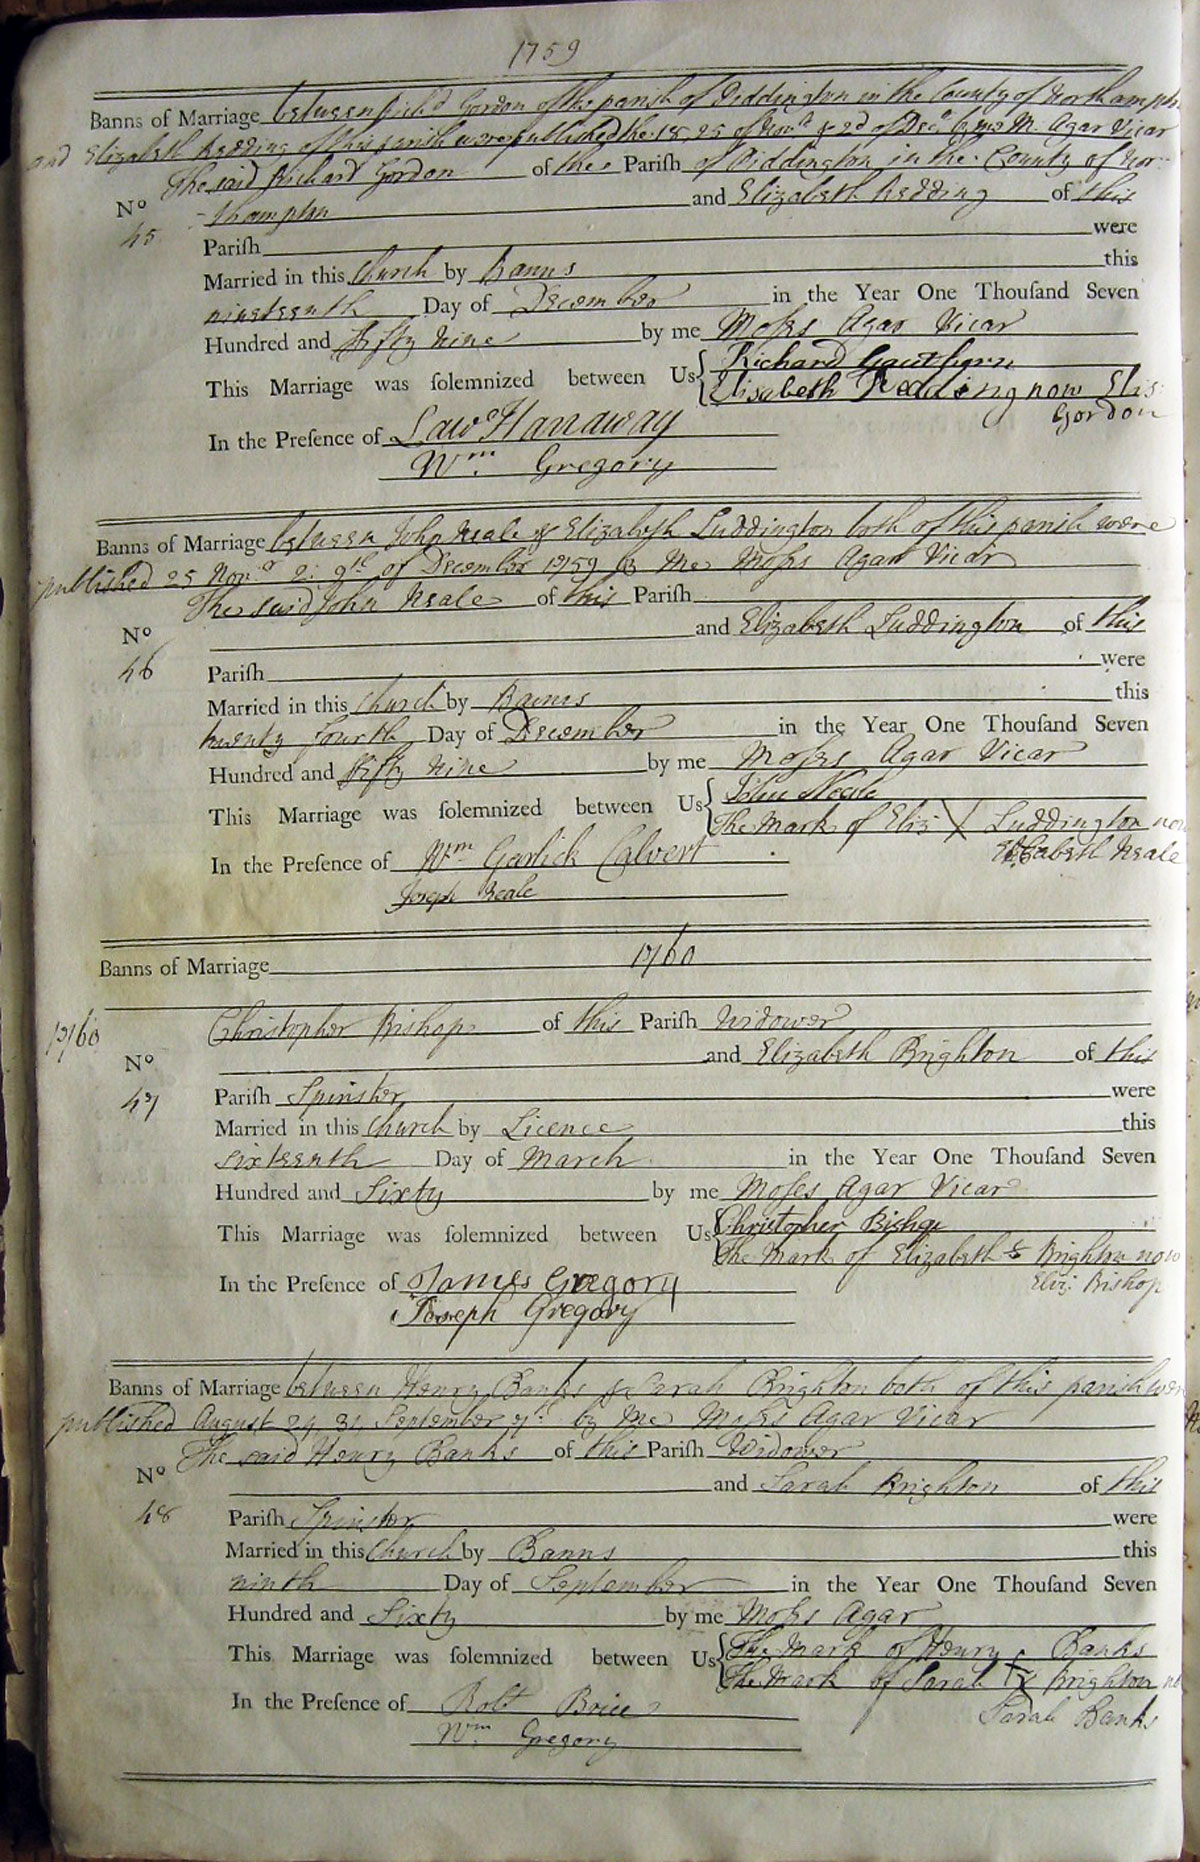 1759
Banns of Marriage between Rich.d Gordon of the parish of Piddington in the County of Northampn
and Elizabeth Redding of this parish were published the 18, 25 of Nov.r & 2d of Dec.r by me M. Agar Vicar
The said Richard Gordon of the Pariſh of Piddington in the County of Nor-
No -thampton and Elizabeth Redding of this
45 Pariſh were
Married in this Church by Banns this
nineteenth Day of December in the Year One Thouſand Seven
Hundred and Fifty Nine by me Moſes Agar Vicar
This Marriage was ſolemnized between Us { Richard Gauthorn
Elisabeth Redding now Elis
Gordon
In the Preſence of Law.e Hanaway
Wm. Gregory
Banns of Marriage between John Neale & Elizabeth Luddington both of this parish were
published 25 Nov.r 2. 9th of December 1759 by Me Moſes Agar Vicar
The said John Neale of this Pariſh
No and Elizabeth Luddington of this
46 Pariſh were
Married in this Church by Banns this
twenty fourth Day of December in the Year One Thouſand Seven
Hundred and fifty Nine by me Moſes Agar Vicar
This Marriage was ſolemnized between Us { John Neale
The Mark of Eliz: X Luddington now
Elizabeth Neale
In the Preſence of Wm. Garlick Calvert
Joseph Neale
Banns of Marriage 1760
1760 Christopher Bishop of this Pariſh Widower
No and Elizabeth Brighton of this
47 Pariſh Spinster were
Married in this Church by Licence this
Sixteenth Day of March in the Year One Thouſand Seven
Hundred and Sixty by me Moſes Agar Vicar
This Marriage was ſolemnized between Us { Christopher Bishop
The Mark of Elizabeth Brighton now
Eliz: Bishop
In the Preſence of James Gregory
Joseph Gregory
Banns of Marriage between Henry Banks & Sarah Brighton both of this parish were
published August 24, 31, September 7th. by Me Moſes Agar Vicar
The said Henry Banks of this Pariſh Widower
No and Sarah Brighton of this
48 Pariſh Spinster were
Married in this Church by Banns this
ninth Day of September in the Year One Thouſand Seven
Hundred and Sixty by me Moſes Agar
This Marriage was ſolemnized between Us { The Mark of Henry Banks
The Mark of Sarah Brighton
Sarah Banks
In the Preſence of Robt Brice
Wm. Gregory